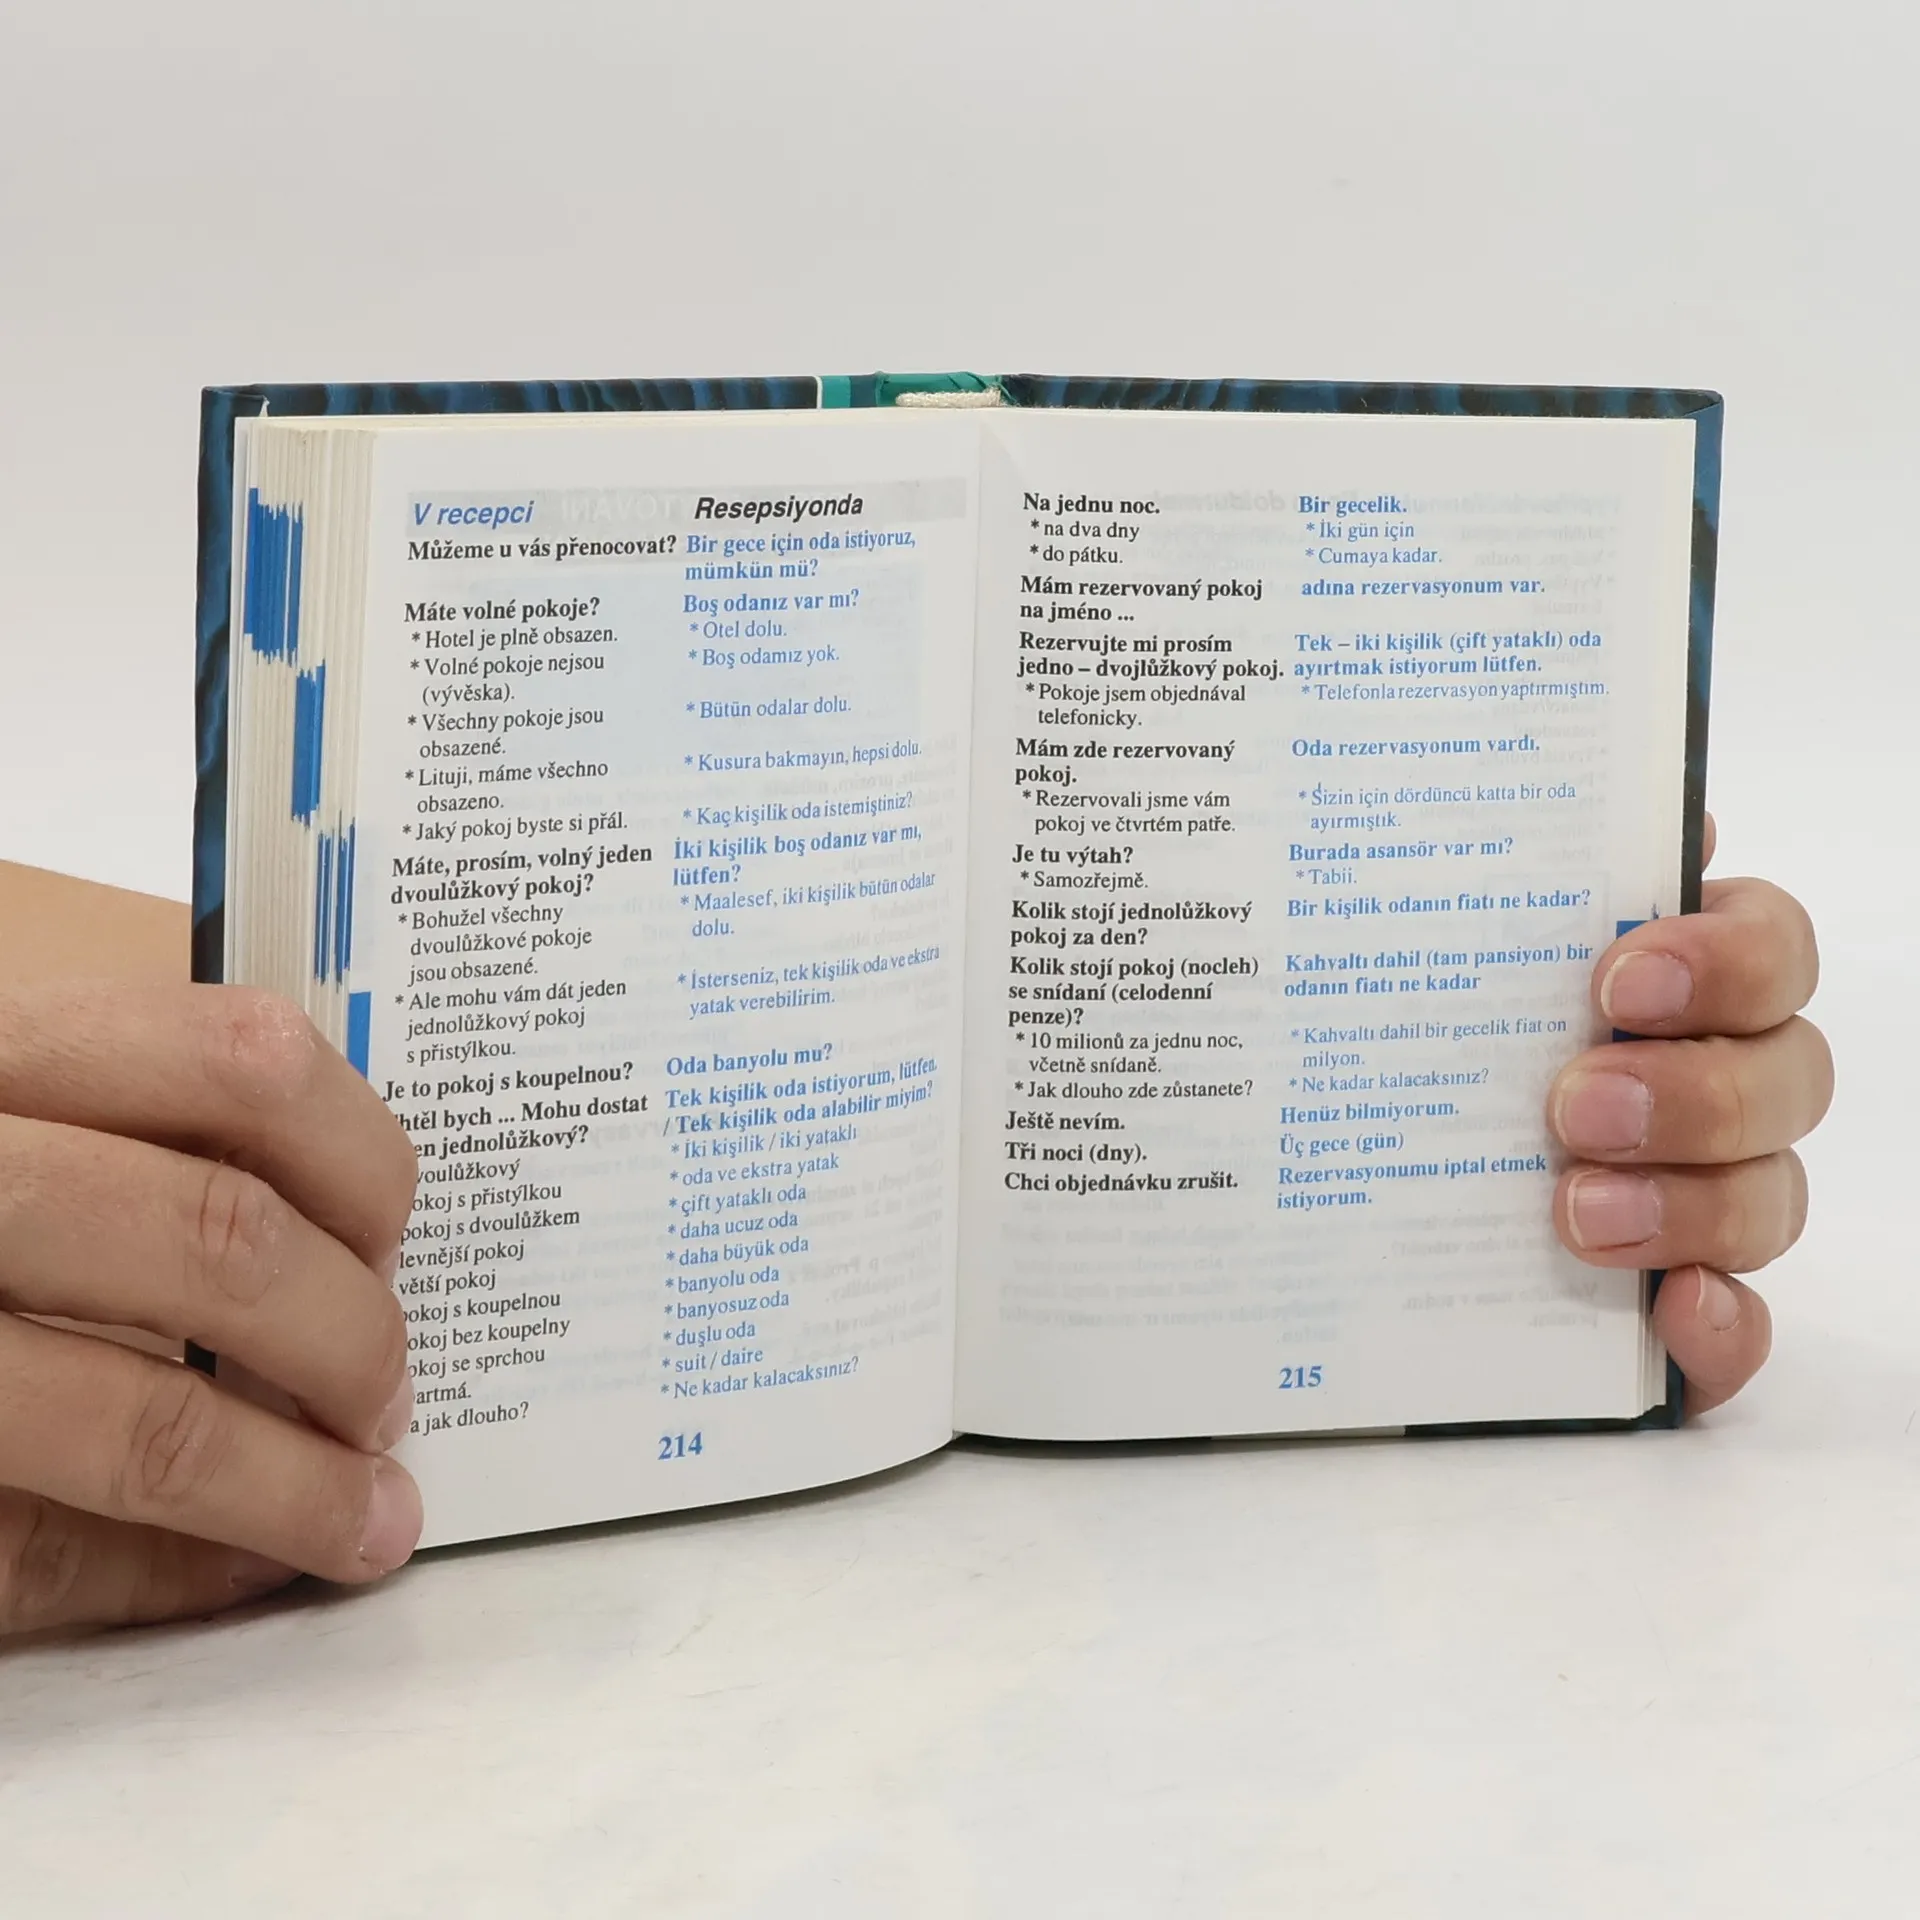 V recepci
Resepsiyonda
Můžeme u vás přenocovat?
Bir gece için oda istiyoruz,
mümkün mü?
Máte volné pokoje?
Boş odanız var mı?
* Hotel je plně obsazen.
* Otel dolu.
* Volné pokoje nejsou
(vývěska).
* Boş odamız yok.
* Všechny pokoje jsou
obsazené.
* Bütün odalar dolu.
* Lituji, máme všechno
obsazeno.
* Kusura bakmayın, hepsi dolu.
* Jaký pokoj byste si přál.
* Kaç kişilik oda istemiştiniz?
Máte, prosím, volný jeden
dvoulůžkový pokoj?
İki kişilik boş odanız var mı,
lütfen?
* Bohužel všechny
dvoulůžkové pokoje
jsou obsazené.
* Maalesef, iki kişilik bütün odalar
dolu.
* Ale mohu vám dát jeden
jednolůžkový pokoj
s přistýlkou.
* İsterseniz, tek kişilik oda ve ekstra
yatak verebilirim.
Je to pokoj s koupelnou?
Oda banyolu mu?
bych ... Mohu dostat
jednolůžkový?
Tek kişilik oda istiyorum, lütfen.
/ Tek kişilik oda alabilir miyim?
* İki kişilik / iki yataklı
s přistýlkou
* oda ve ekstra yatak
pokoj s dvoulůžkem
* çift yataklı oda
levnější pokoj
* daha ucuz oda
větší pokoj
* daha büyük oda
s koupelnou
* banyolu oda
bez koupelny
* banyosuz oda
se sprchou
* duşlu oda
* suit / daire
jak dlouho?
* Ne kadar kalacaksınız?
214
Na jednu noc.
Bir gecelik.
* na dva dny
* İki gün için
* do pátku.
* Cumaya kadar.
Mám rezervovaný pokoj
na jméno ...
adına rezervasyonum var.
Rezervujte mi prosím
jedno – dvojlůžkový pokoj.
Tek – iki kişilik (çift yataklı) oda
ayırtmak istiyorum lütfen.
* Pokoje jsem objednával
telefonicky.
* Telefonla rezervasyon yaptırmıştım.
Mám zde rezervovaný
pokoj.
Oda rezervasyonum vardı.
* Rezervovali jsme vám
pokoj ve čtvrtém patře.
* Sizin için dördüncü katta bir oda
ayırmıştık.
Je tu výtah?
Burada asansör var mı?
* Samozřejmě.
* Tabii.
Kolik stojí jednolůžkový
pokoj za den?
Bir kişilik odanın fiatı ne kadar?
Kolik stojí pokoj (nocleh)
se snídaní (celodenní
penze)?
Kahvaltı dahil (tam pansiyon) bir
odanın fiatı ne kadar
* 10 milionů za jednu noc,
včetně snídaně.
* Kahvaltı dahil bir gecelik fiat on
milyon.
* Jak dlouho zde zůstanete?
* Ne kadar kalacaksınız?
Ještě nevím.
Henüz bilmiyorum.
Tři noci (dny).
Üç gece (gün)
Chci objednávku zrušit.
Rezervasyonumu iptal etmek
istiyorum.
215